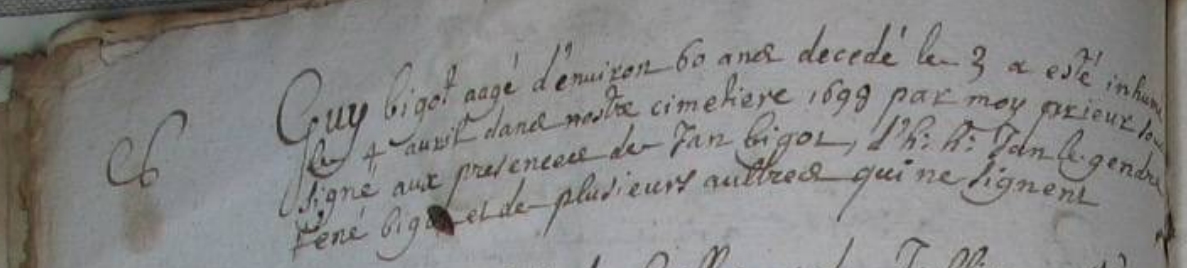 Guy bigot aagé d'enuiron 60 ans decedé le 3 a esté inhumé
le 4 auril dans nostre cimetiere 1699 par moy prieur sous
signé aux presences de Jan bigot, d'h: h: Jan le gendre
rené bigot et de plusieurs aultres qui ne signent